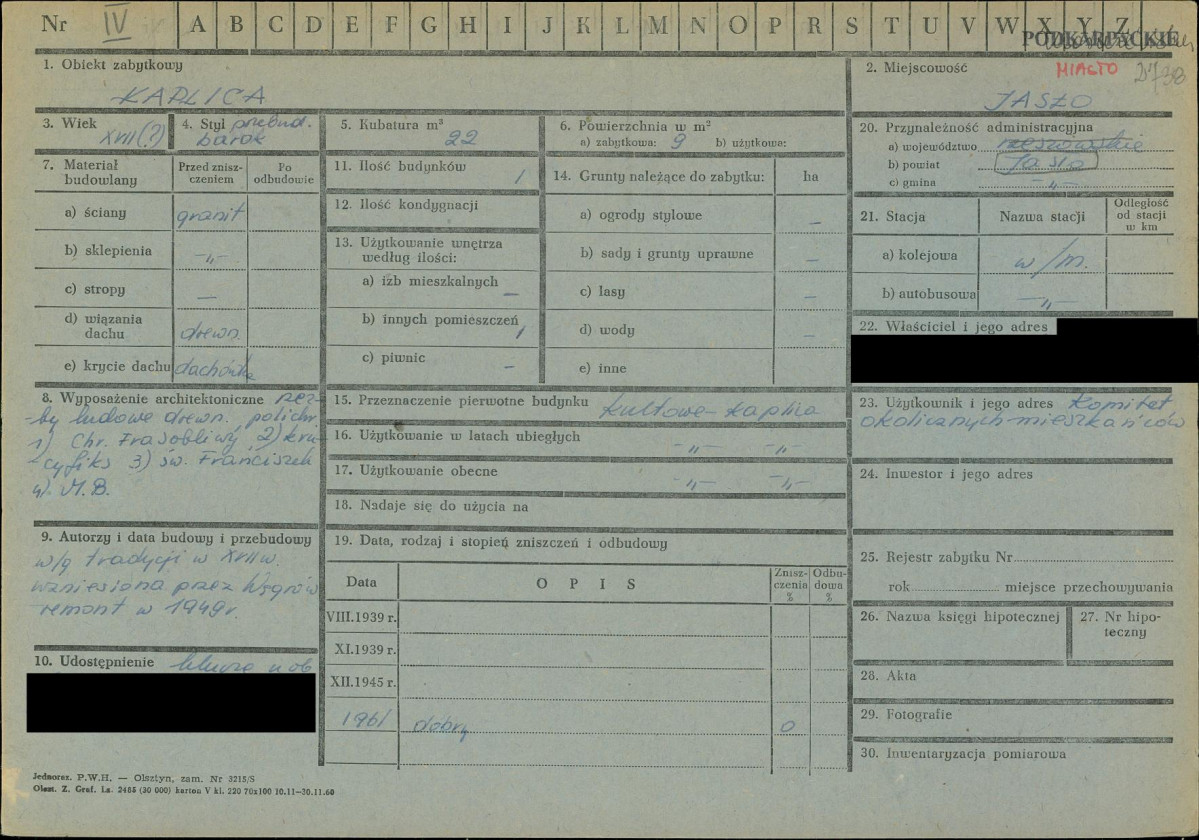 Nr IV A B C D E F G H I J K L M N O P R S T U V W X Y Z
PODKARPACKIE
1. Obiekt zabytkowy
KAPLICA
2. Miejscowość
MIASTO 2798
JASŁO
3. Wiek
XVII(?)
4. Styl przebud.
barok
5. Kubatura m³
22
6. Powierzchnia w m²
a) zabytkowa: 9 b) użytkowa:
20. Przynależność administracyjna
a) województwo rzeszowskie
b) powiat Jasło
c) gmina -„-
7. Materiał budowlany
Przed zniszczeniem
Po odbudowie
a) ściany granit
b) sklepienia -„-
c) stropy —
d) wiązania dachu drewn.
e) krycie dachu dachówka
11. Ilość budynków 1
12. Ilość kondygnacji
13. Użytkowanie wnętrza
według ilości:
a) izb mieszkalnych —
b) innych pomieszczeń 1
c) piwnic —
14. Grunty należące do zabytku: ha
a) ogrody stylowe —
b) sady i grunty uprawne —
c) lasy —
d) wody —
e) inne
21. Stacja Nazwa stacji
Odległość
od stacji
w km
a) kolejowa w/m.
b) autobusowa -„-
22. Właściciel i jego adres
8. Wyposażenie architektoniczne rzeź-
-by ludowe drewn. polichr.
1) Chr. Frasobliwy 2) kru-
-cyfiks 3) św. Franciszek
4) M.B.
15. Przeznaczenie pierwotne budynku kultowe - kaplica
16. Użytkowanie w latach ubiegłych -„- -„-
17. Użytkowanie obecne -„- -„-
18. Nadaje się do użycia na
23. Użytkownik i jego adres Komitet
okolicznych mieszkańców
24. Inwestor i jego adres
9. Autorzy i data budowy i przebudowy
w/g tradycji w XVII w.
wzniesiona przez Węgrów
remont w 1949 r.
19. Data, rodzaj i stopień zniszczeń i odbudowy
Data
O P I S
Zniszczenia
%
Odbudowa
%
VIII.1939 r.
XI.1939 r.
XII.1945 r.
1961 dobry 0
25. Rejestr zabytku Nr
rok miejsce przechowywania
26. Nazwa księgi hipotecznej
27. Nr hipoteczny
28. Akta
29. Fotografie
30. Inwentaryzacja pomiarowa
10. Udostępnienie klucze u ob
Jednoraz. P.W.H. — Olsztyn, zam. Nr 3215/S
Olszt. Z. Graf. Lz. 2485 (30 000) karton V kl. 220 70x100 10.11—30.11.60